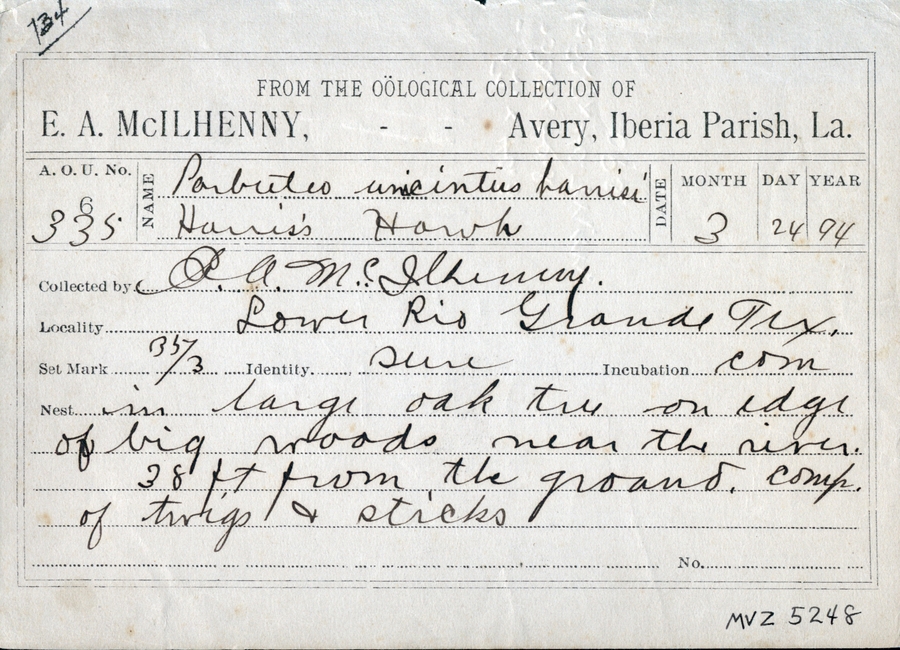 134
FROM THE OÖLOGICAL COLLECTION OF
E. A. McILHENNY, - - Avery, Iberia Parish, La.
A. O. U. No. 335 6
NAME Parbuteo unicintus harrisi
Harris's Hawk
DATE MONTH 3 DAY 24 YEAR 94
Collected by E. A. McIlhenny.
Locality Lower Rio Grande Tex.
Set Mark 135/3 Identity. sure Incubation com
Nest in large oak tree on edge
of big woods near the river.
38 ft from the ground. comp.
of twigs & sticks
No.
MVZ 5248